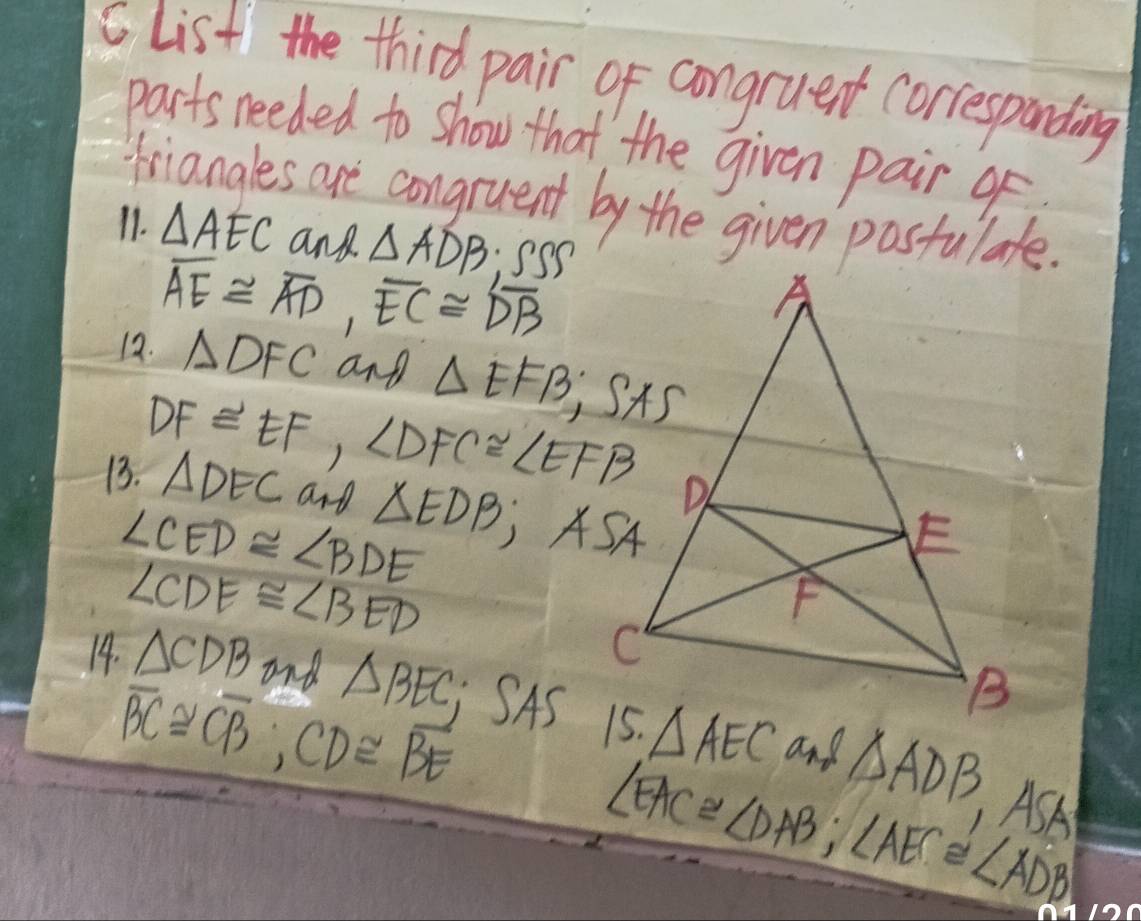 C List the third pair of congruent corresponding
parts needed to show that the given pair of
triangles are congruent by the given postulate.
11. ΔAEC and ΔADB; SSS
A̅E̅ ≅ A̅D̅, E̅C̅ ≅ D̅B̅
12. ΔDFC and ΔEFB; SAS
DF ≅ EF, ∠DFC ≅ ∠EFB
13. ΔDEC and ΔEDB; ASA
∠CED ≅ ∠BDE
∠CDE ≅ ∠BED
14. ΔCDB and ΔBEC; SAS
B̅C̅ ≅ C̅B̅; CD ≅ B̅E̅
15. ΔAEC and ΔADB, ASA
∠EAC ≅ ∠DAB; ∠AEC ≅ ∠ADB
A
D
E
F
C
B